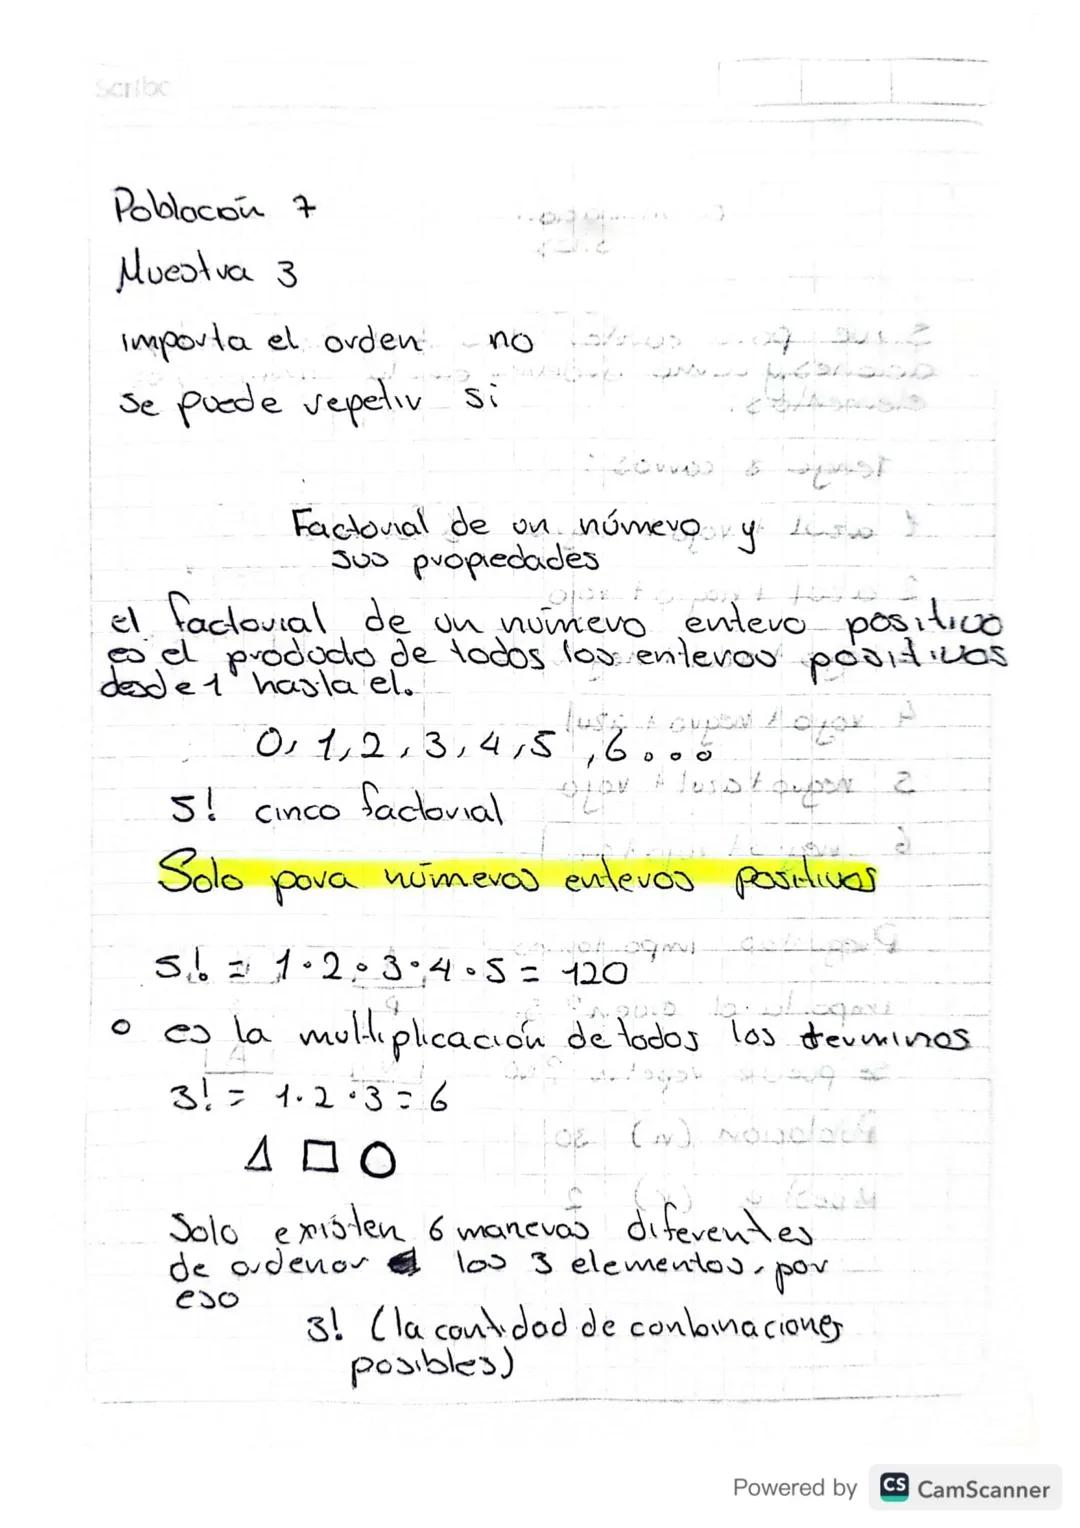 Scribe
Población 7
Muestra 3
importa el orden no
se puede repetir si
Factorial de un número y
sus propiedades
el factorial de un número entero positivo
es el producto de todos los enteros positivos
desde 1 hasta el.
0, 1, 2, 3, 4, 5, 6...
5! cinco factorial
Solo para números enteros positivos
5! = 1·2·3·4·5 = 120
es la multiplicación de todos los terminos
3! = 1·2·3 = 6
Solo existen 6 maneras diferentes
de ordenar los 3 elementos, por
eso
3! (la cantidad de conbinaciones
posibles)
Powered by CS CamScanner